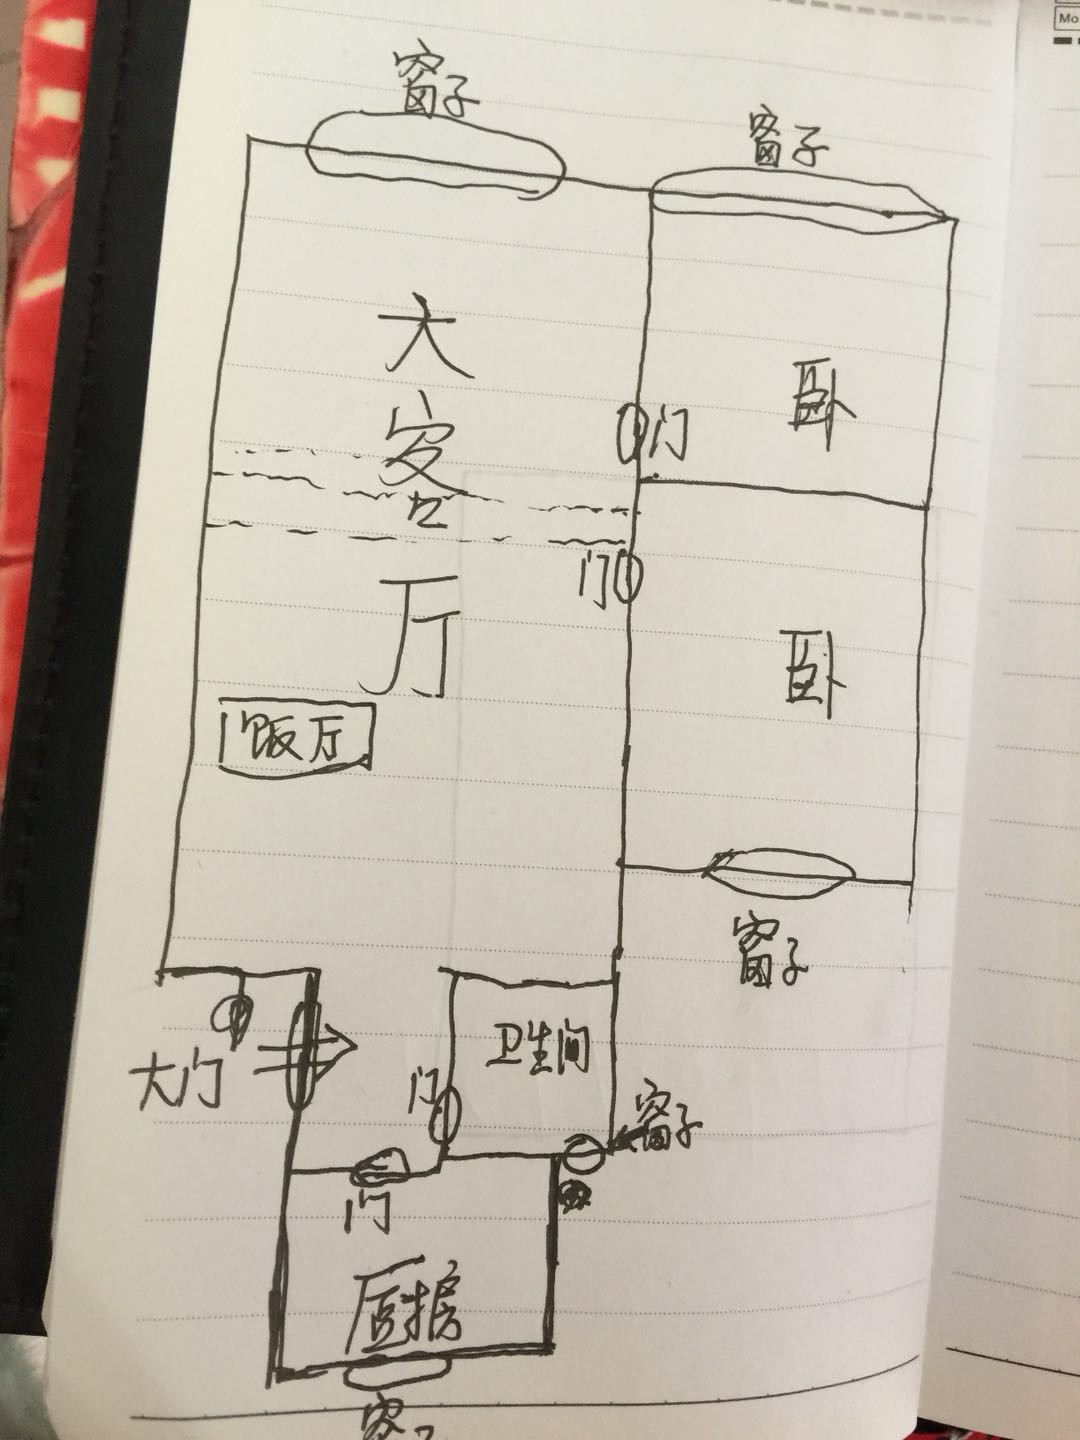 Mo
窗子
窗子
大
客
厅
卧
门
门
卧
饭厅
窗子
大门
门
卫生间
窗子
门
厨房